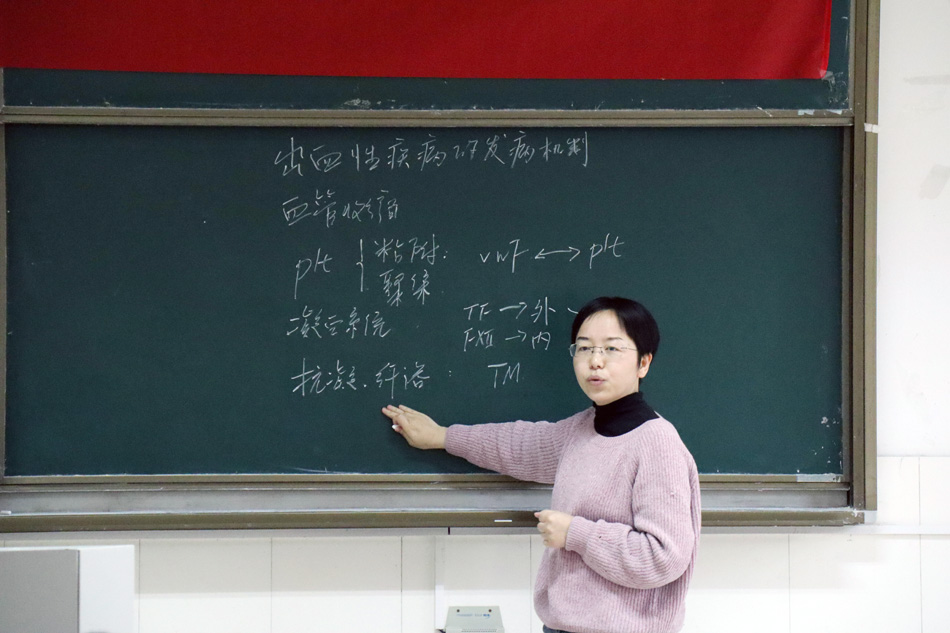 出血性疾病的发病机制
血管收缩
plt { 粘附: vWF ↔ plt
聚集
凝血系统 TF → 外
FXII → 内
抗凝.纤溶: TM